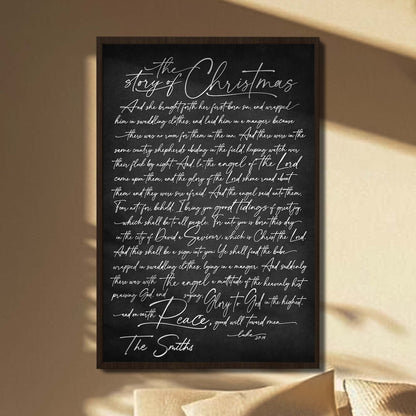 the
story of Christmas
And she brought forth her first-born son, and wrapped
him in swaddling clothes, and laid him in a manger because
there was no room for them in the inn. And there were in the
same country shepherds abiding in the field, keeping watch over
their flock by night. And, lo, the angel of the Lord
came upon them, and the glory of the Lord shone round about
them: and they were sore afraid. And the angel said unto them,
Fear not: for, behold, I bring you good tidings of great joy,
which shall be to all people. For unto you is born this day
in the city of David a Saviour, which is Christ the Lord.
And this shall be a sign unto you: Ye shall find the babe
wrapped in swaddling clothes, lying in a manger. And suddenly
there was with the angel a multitude of the heavenly host
praising God, and saying Glory to God in the highest,
and on earth Peace, good will toward men.
Luke
The Smiths